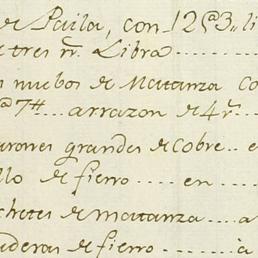 de Paila, con 12@3„ li
e tres rr. Libra
s nuebos de Matanza co
@7tt arrazon de 4 r.
arones grandes de cobre .. e
llo de fierro .... en ....
chetes de matanza .. a
aderas de fierro ... à